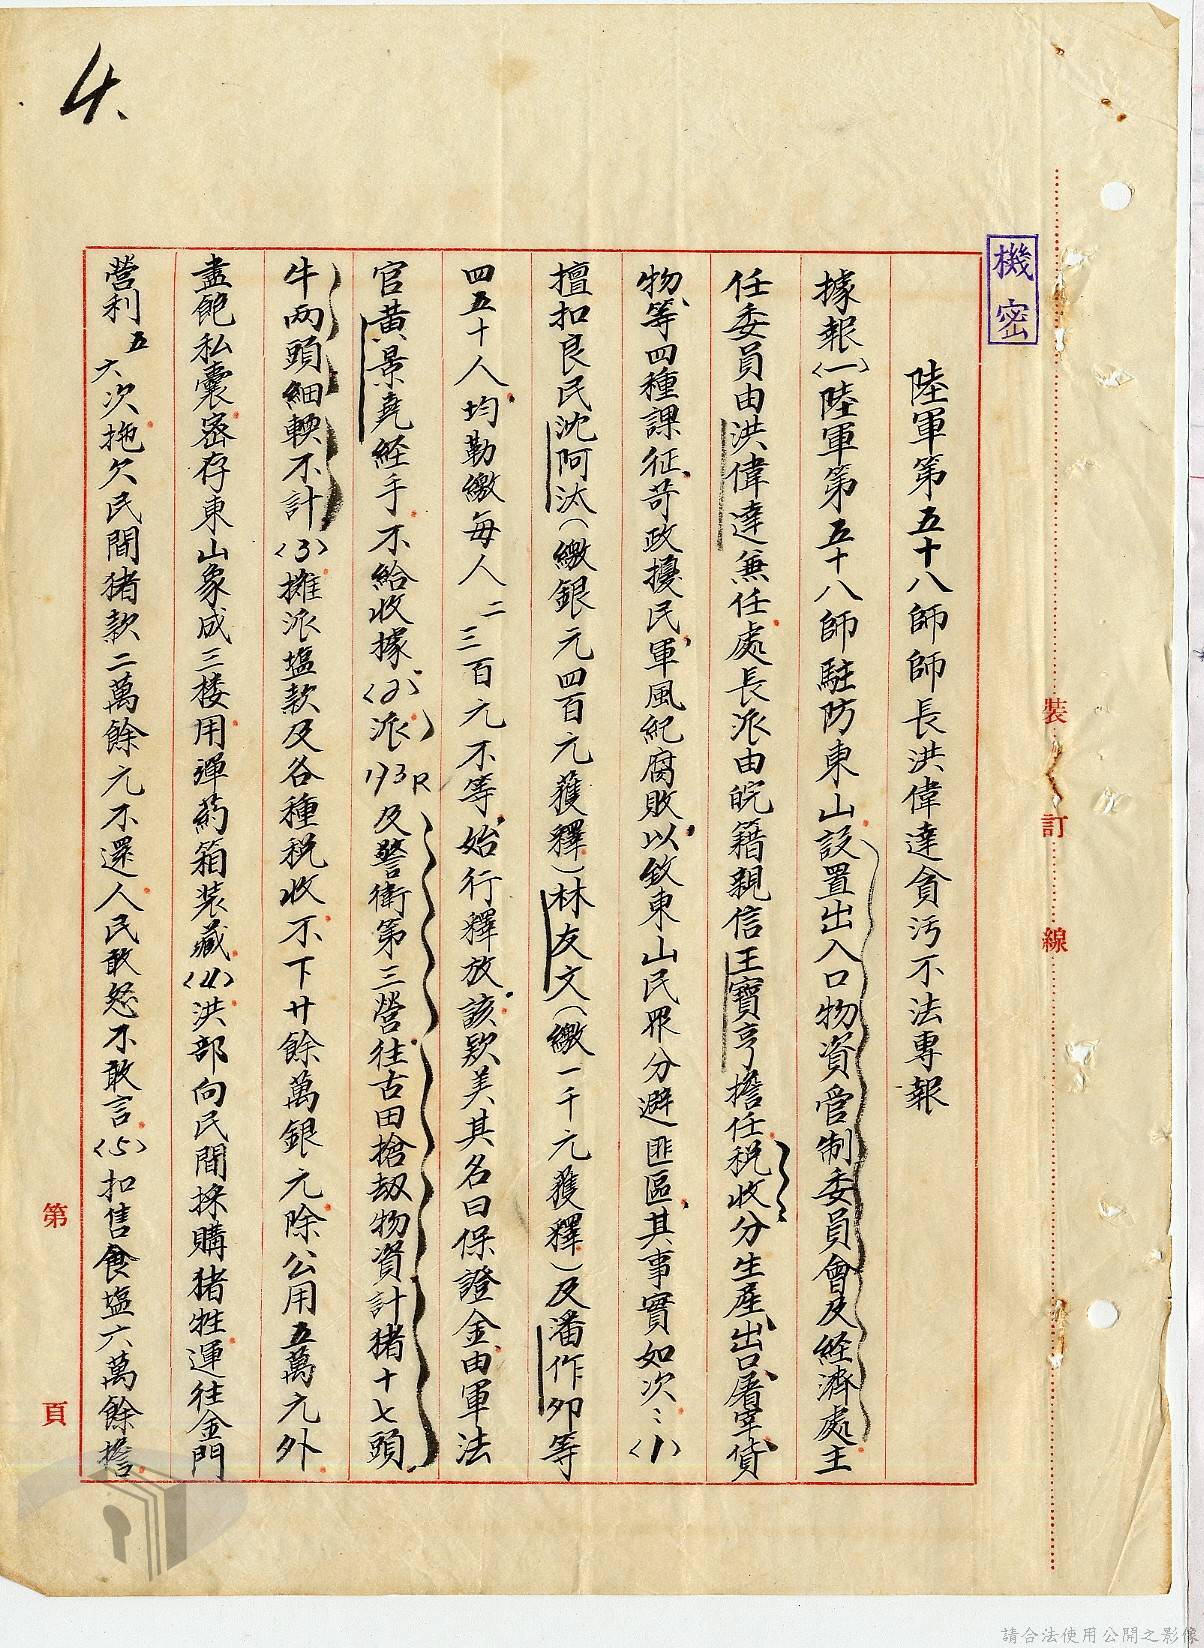 4、
機密
陸軍第五十八師師長洪偉達貪污不法專報
據報(一)陸軍第五十八師駐防東山設置出入口物資管制委員會及経濟處主
任委員由洪偉達兼任處長派由皖籍親信王寶亨擔任税收分生產、出口、屠宰、貨
物、等四種課征、苛政擾民、軍風紀腐敗、以致東山民眾分避匪區、其事實如次：〈1〉
擅扣良民沈阿汰(繳銀元四百元獲釋)林友文(繳一千元獲釋)及潘作夘等
四五十人、均勒繳每人二三百元不等、始行釋放、該欵美其名曰保證金、由軍法
官黄景堯経手不給收據、〈2〉派173R及警衛第三營往古田搶刼物資計猪十七頭
牛兩頭細輭不計〈3〉攤派塩款及各種税收不下廿餘萬銀元除公用五萬元外
盡飽私囊密存東山象成三楼用彈葯箱装藏〈4〉洪部向民間採購猪牲運往金門
營利五六次拖欠民間猪款二萬餘元不還人民敢怒不敢言〈5〉扣售食塩六萬餘擔
裝訂線
第 頁
請合法使用公開之影像